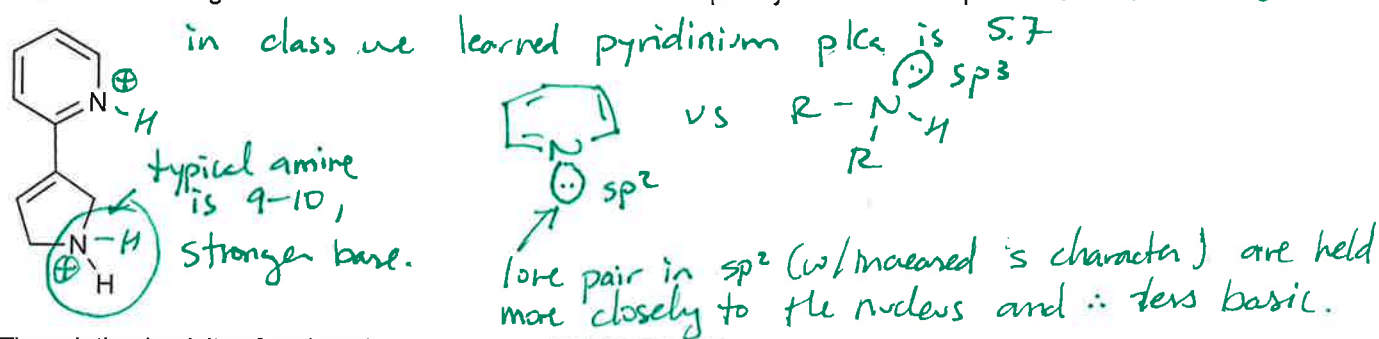 in class we learned pyridinium pKa is 5.7
N
⊕
H
typical amine
is 9-10,
stronger base.
N
⊕
H
H
N
sp²
vs
R-N
H
R
sp³
lone pair in sp² (w/increased s character) are held
more closely to the nucleus and ∴ less basic.